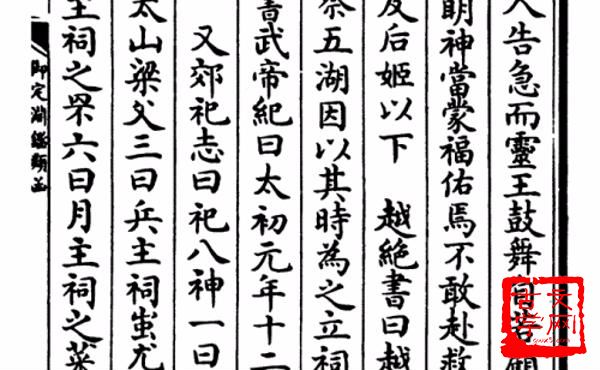 人告急而靈王鼓舞自若顧
明神當蒙福佑焉不敢赴救
及后姬以下 越絶書曰越
祭五湖因以其時為之立祠
書武帝紀曰太初元年十二
又郊祀志曰祀八神一曰
太山梁父三曰兵主祠蚩尤
主祠之罘六曰月主祠之萊
御定淵鑑類函
古文学网